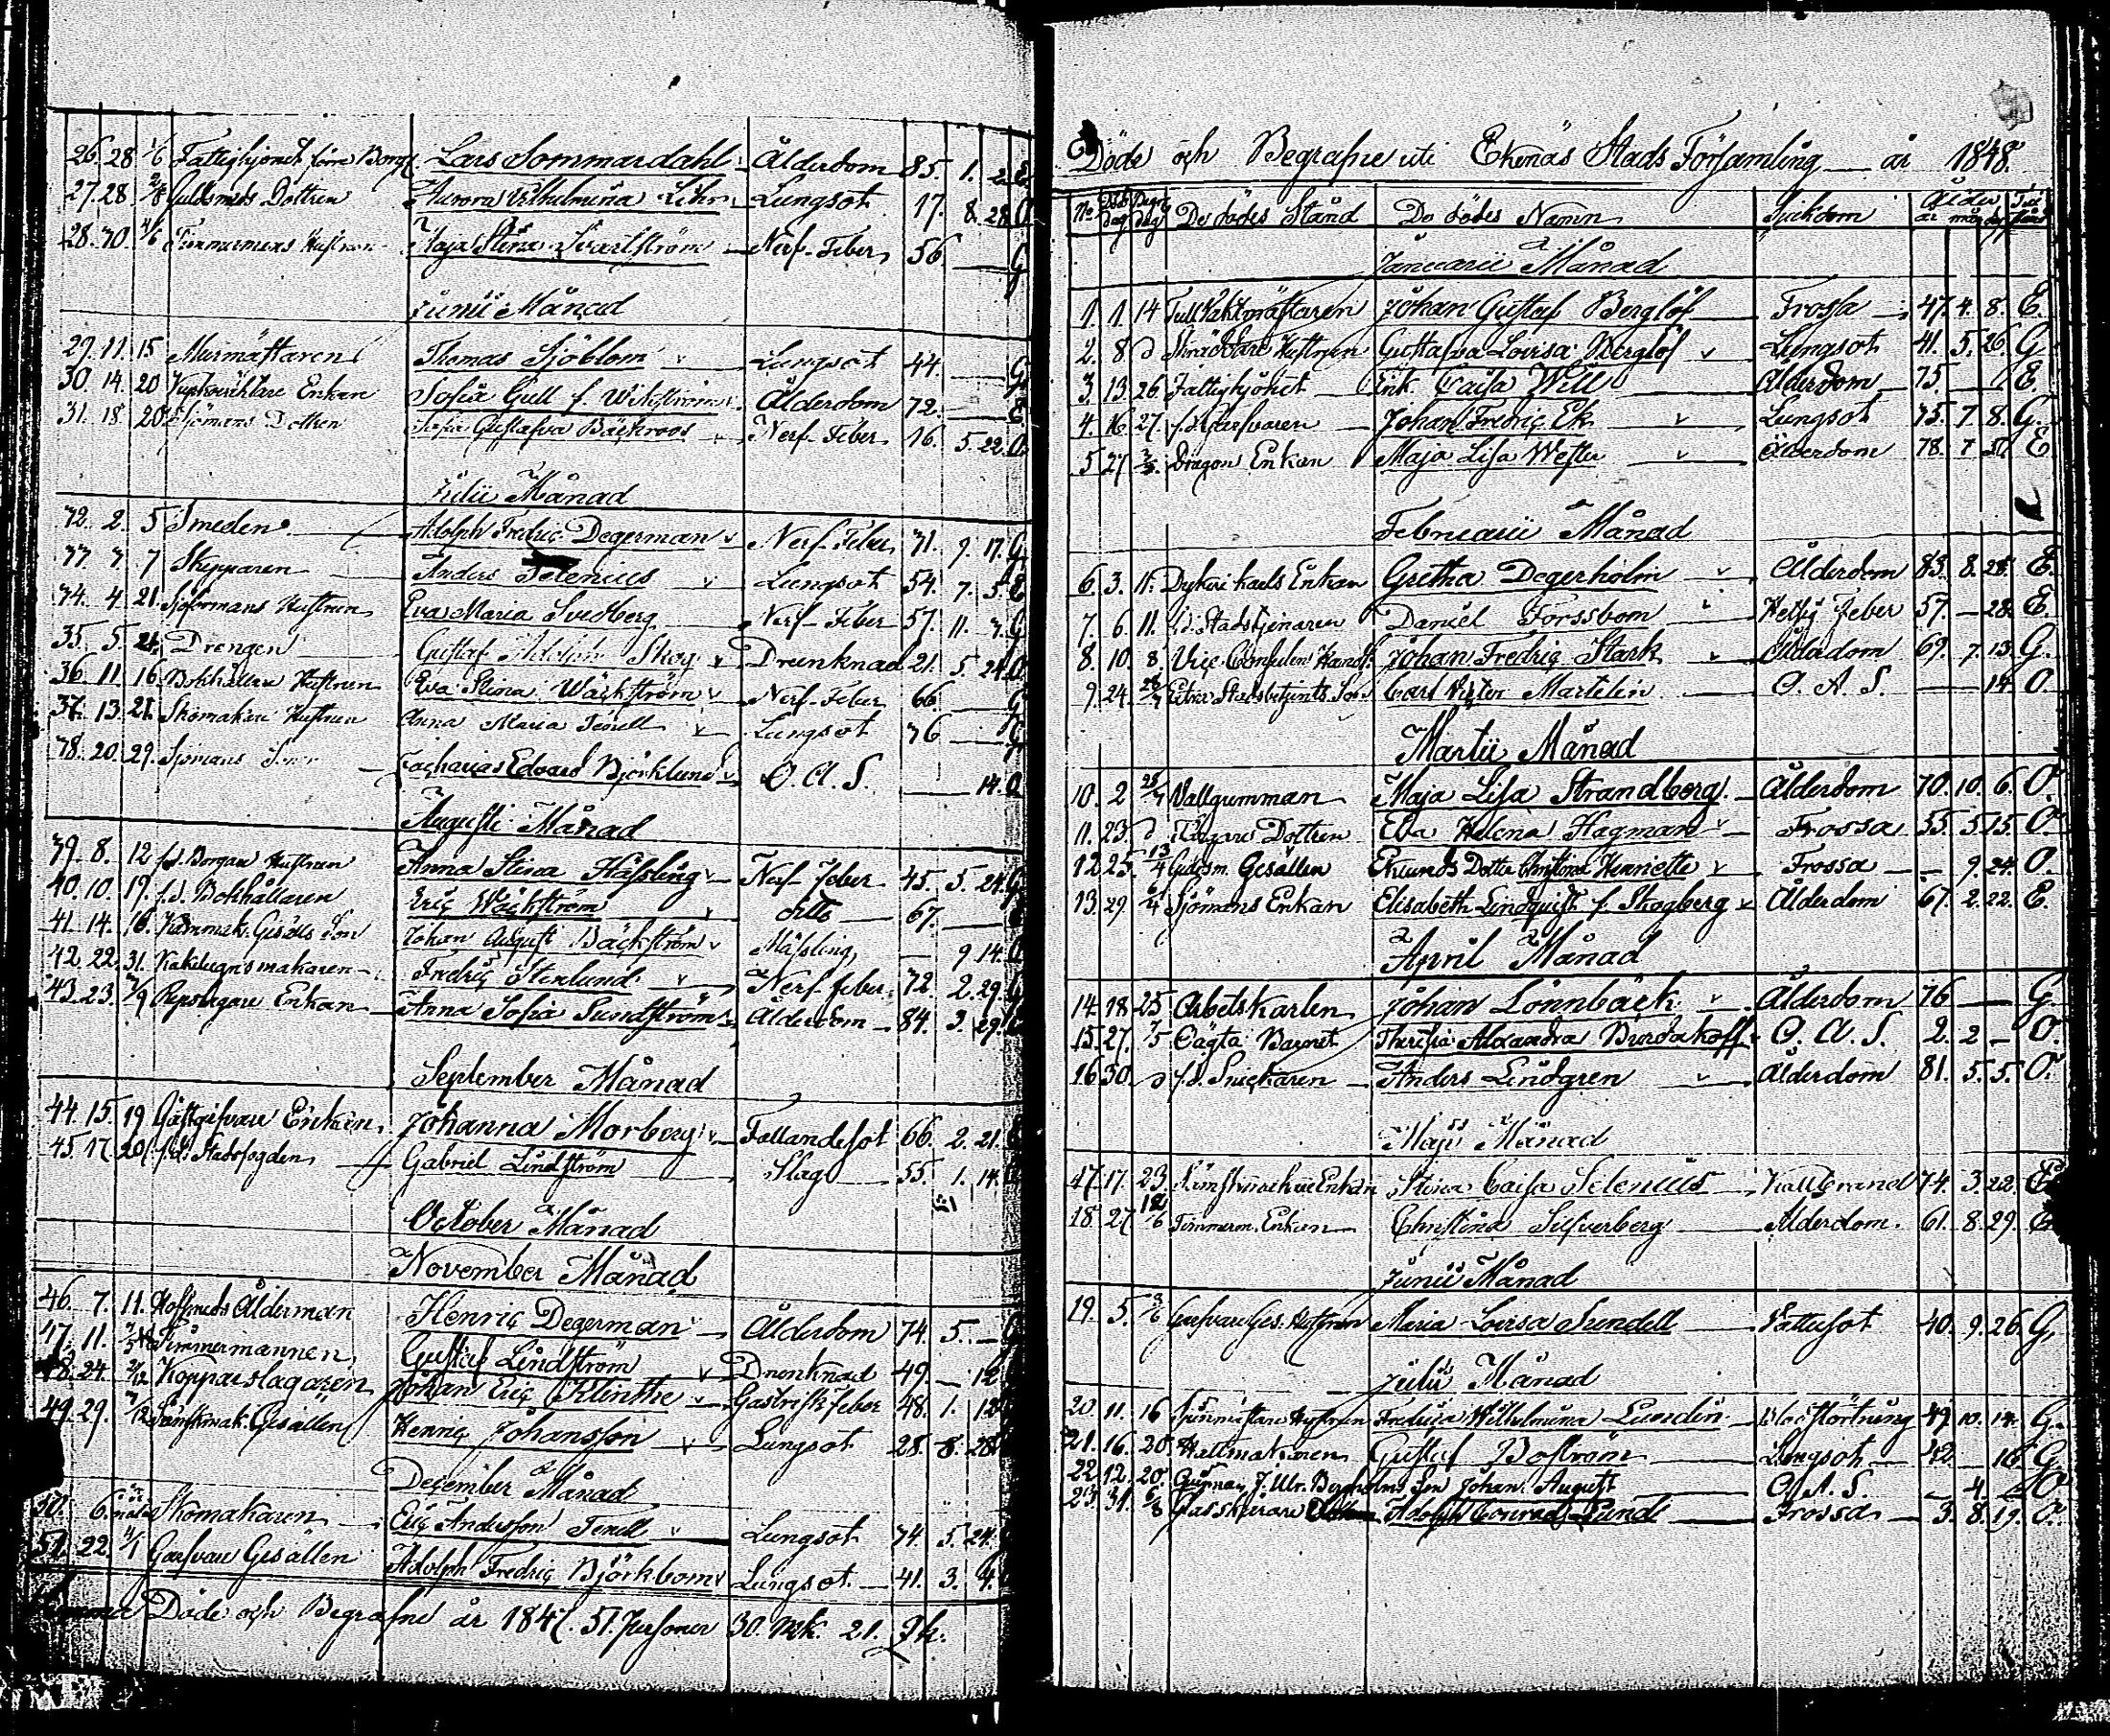 26. 28 1/6 Fattighjonet Lars Sommardahl Ålderdom 85. 1. 2. E
27. 28 2/6 Guldsmeds Dottren Aurora Vilhelmina Lungsot 17. 8. 28. O
28. 30. 4/6 Timmermans Hustrun Maja Stina Svartström Nerf-Feber 56. — G
Junii Månad
29. 11. 15 Murmästaren Thomas Sjöblom Lungsot 44. — G
30. 14. 20 Enkan Sofia Gull f. Wikström Ålderdom 72. — E
31. 18. 20 Sjömans Dottren Sofia Gustafva Bäckroos Nerf-Feber 16. 5. 22. O
Julii Månad
32. 2. 5 Smeden Adolph Fredric Degerman Nerf-Feber 31. 9. 17. G
33. 3. 7 Skepparen Anders Selenius Lungsot 54. 7. 5. E
34. 4. 21. Hustrun Eva Maria Svedberg Nerf-Feber 57. 11. 7. G
35. 5. 24. Drengen Gustaf Adolph Skog Drunknad 21. 5. 24. O
36. 11. 16. Bokhållare Hustrun Eva Stina Wäckström Nerf-Feber 66. — G
37. 13. 21. Skomakare Hustrun Anna Maria Tenell Lungsot 76 — G
38. 20. 29. Sjömans Son Zacharias Edvard Björklund O. A. S. — 14. O
Augusti Månad
39. 8. 12 f.d. Borgare Hustrun Anna Stina Hässling Nerf-Feber 45. 5. 24. G
40. 10. 19. f.d. Bokhållaren Eric Wäckström dito 67. —
41. 14. 16. Gesälls Son Johan August Bäckström Mässling — 9. 14. O
42. 22. 31. Kakelugnsmakaren Fredric Stenlund Nerf-feber 32. 2. 29. G
43. 23. 3/9 Repslagare Enkan Anna Sofia Sundström Ålderdom 84. 3. 29.
September Månad
44. 15. 19 Gästgifvare Enkan Johanna Morberg Fallandesot 66. 2. 21.
45. 17. 20 f.d. Stadsfogden Gabriel Lindström Slag 55. 1. 14.
October Månad
November Månad
46. 7. 11. Hofsmeds Ålderman Henric Degerman Ålderdom 74. 5. — G
47. 11. Timmermannen Gustaf Lindström Drunknad 49. — 12.
48. 24. 2/12 Kopparslagaren Johan Eric Klinthe Gastrisk Feber 48. 1. 12.
49. 29. Gesällen Henric Johansson Lungsot 28. 8. 28.
December Månad
50. 6. Skomakaren Eric Andersson Tenell Lungsot 74. 5. 24.
51. 22. 4/1 Garfvare Gesällen Adolph Fredric Björkbom Lungsot 41. 3. 4.
Summa Döde och Begrafne år 1847. 51. Personer 30. Mk. 21. Qk.
Döde och Begrafne uti Ekenäs Stads Församling år 1848.
No Död dag Begr. dag De dödes Stånd De dödes Namn Sjukdom Ålder år mån dag
Januarii Månad
1. 1. 14 Tullvaktmästaren Johan Gustaf Berglöf Frossa 47. 4. 8. E.
2. 8. d Skräddare Hustrun Gustafva Lovisa Berglöf Lungsot 41. 5. 26. G
3. 13. 26. Fattighjonet Enk. Caisa Will Ålderdom 75. — E
4. 16. 27. f.d. Garfvaren Johan Fredric Ek Lungsot 75. 7. 8. G.
5. 27. Dragon Enkan Maja Lisa Wester Ålderdom 78. 7. E
Februarii Månad
6. 3. 11. Enkan Gretha Degerholm Ålderdom 83. 8. 28. E.
7. 6. 11. f.d. Stadstjenaren Daniel Forssbom Hetsig Feber 57. — 28. E.
8. 10. 8. Vice Consulen Johan Fredric Stark Ålderdom 69. 7. 13. G.
9. 24. Carl Victor Martelin O. A. S. — 14. O.
Martii Månad
10. 2. Vallgumman Maja Lisa Strandberg Ålderdom 70. 10. 6. O.
11. 23. d Dottren Eva Helena Hagman Frossa 55. 5. 15. O.
12. 25. 13/4 Guldsm. Gesällen Eklunds Dotter Christina Henriette Frossa — 9. 24. O.
13. 29. Sjömans Enkan Elisabeth Lindquist f. Skogberg Ålderdom 67. 2. 22. E.
April Månad
14. 18. 25. Arbetskarlen Johan Lönnbäck Ålderdom 76 — G
15. 27. 7/5 Oägta Barnet Theresia Alexandra O. A. S. 2. 2 — O.
16. 30. d f.d. Snickaren Anders Lindgren Ålderdom 81. 5. 5. O.
Maji Månad
17. 17. 23 Enkan Stina Caisa Selenius Kallbrand 74. 3. 22. E
18. 27. 12/6 Timmerm. Enkan Christina Silfverberg Ålderdom 61. 8. 29. E
Junii Månad
19. 5. Garfvare Ges. Hustrun Maria Lovisa Sundell Vattusot 40. 9. 26. G.
Julii Månad
20. 11. 16 Hustrun Fredrica Wilhelmina Lundin Blodstörtning 49. 10. 14. G.
21. 16. 20. Hattmakaren Gustaf Boström Lungsot 42. — 16. G.
22. 12. 20. J. Ulr. Bergholms Son Johan August O. A. S. — 4. O
23. 31. 6/8 Adolph Conrad Lund Frossa 3. 8. 19. O.